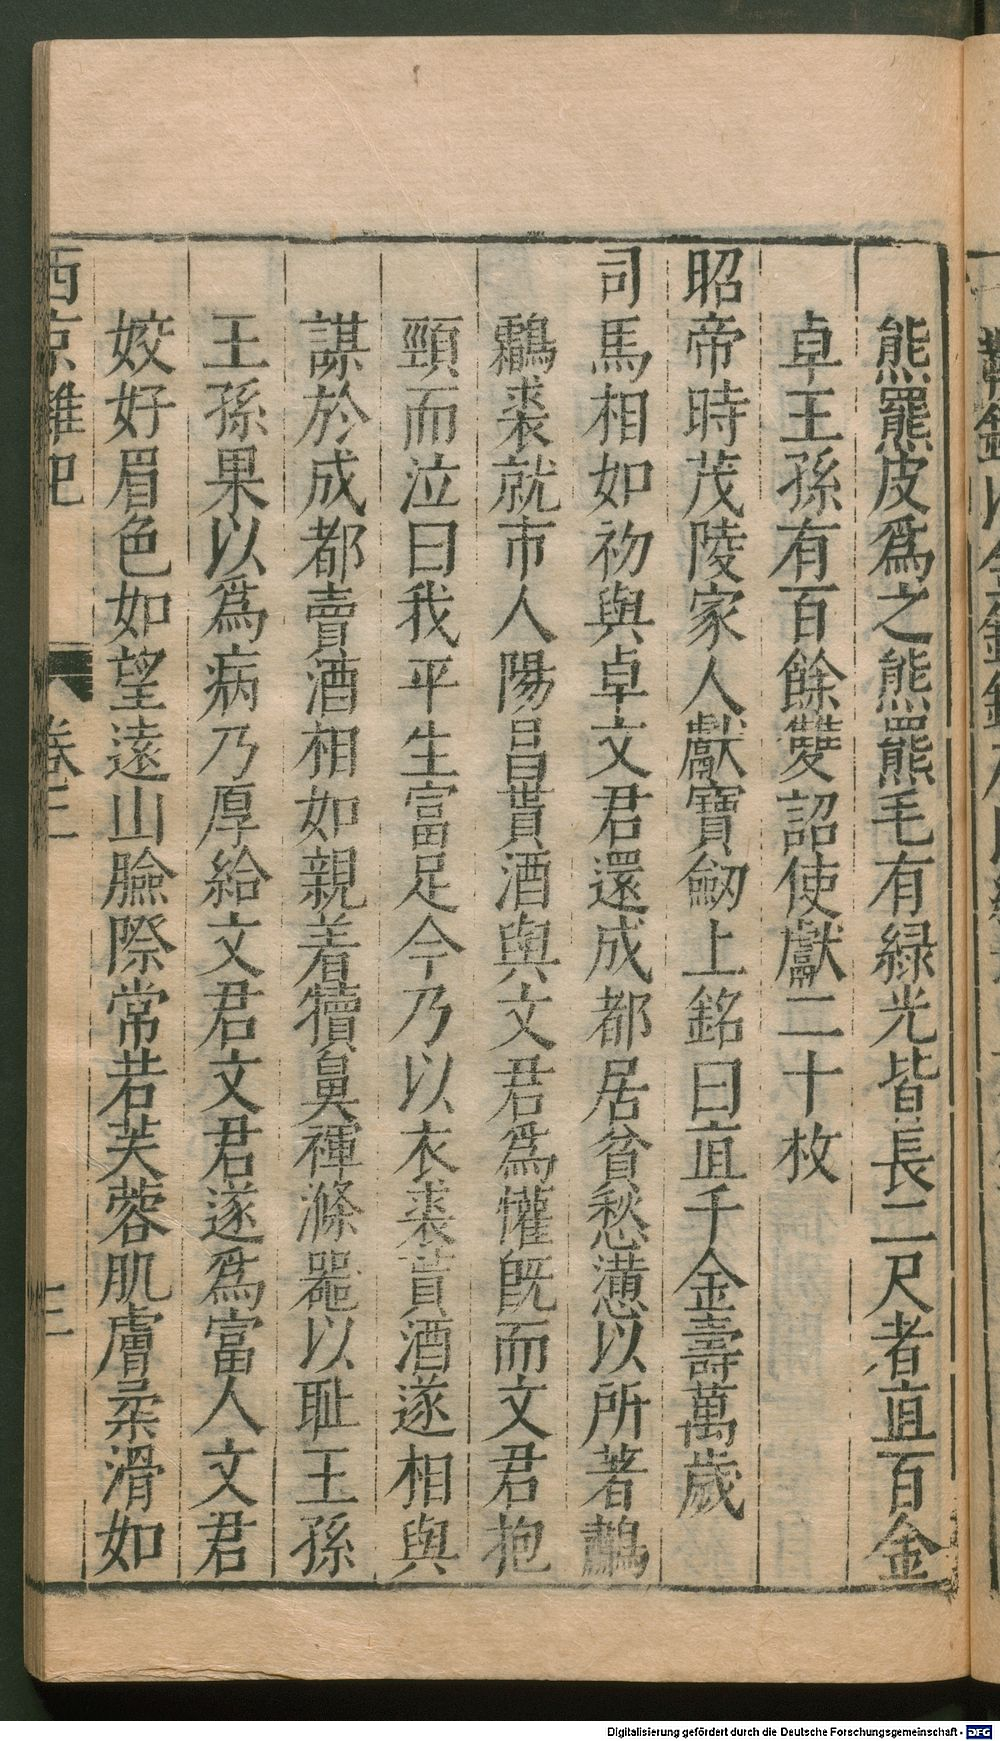 熊羆皮爲之熊羆毛有緑光皆長二尺者直百金
卓王孫有百餘雙詔使獻二十枚
昭帝時茂陵家人獻寶劒上銘曰直千金壽萬歲
司馬相如初與卓文君還成都居貧愁懣以所著鷫
鸘裘就市人陽昌貰酒與文君爲懽旣而文君抱
頸而泣曰我平生富足今乃以衣裘貰酒遂相與
謀於成都賣酒相如親着犢鼻褌滌器以耻王孫
王孫果以爲病乃厚給文君文君遂爲富人文君
姣好眉色如望遠山臉際常若芙蓉肌膚柔滑如
西京雜記 卷二 三
Digitalisierung gefördert durch die Deutsche Forschungsgemeinschaft - DFG